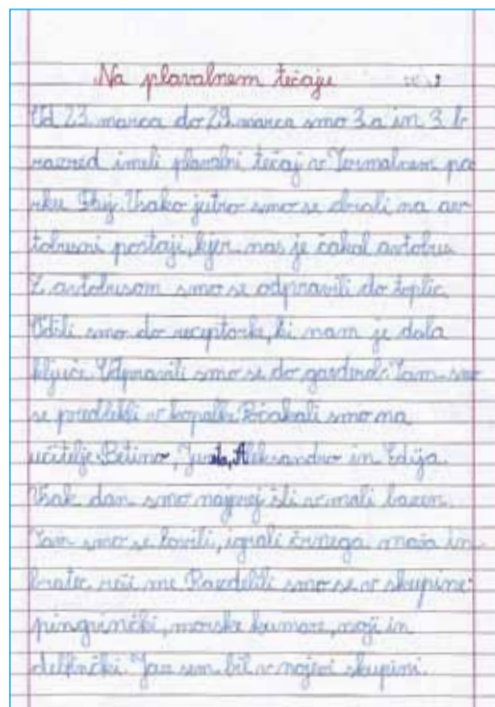 Na plavalnem tečaju
Od 23. marca do 29. marca smo 3. a in 3. b
razred imeli plavalni tečaj v Termalnem pa
rku Ptuj. Vsako jutro smo se zbrali na av
tobusni postaji, kjer nas je čakal avtobus.
Z avtobusom smo se odpravili do toplic.
Odšli smo do receptorke, ki nam je dala
ključe. Odpravili smo se do garderob. Tam smo
se preoblekli v kopalke. Počakali smo na
učitelje: Betino, Aleksandro in Edija.
Vsak dan smo najprej šli v mali bazen.
Tam smo se lovili, igrali črnega moža in
bratec reši me. Razdelili smo se v skupine:
pingvinčki, morske kumare, noji in
delfinčki. Jaz sem bil v nojevi skupini.